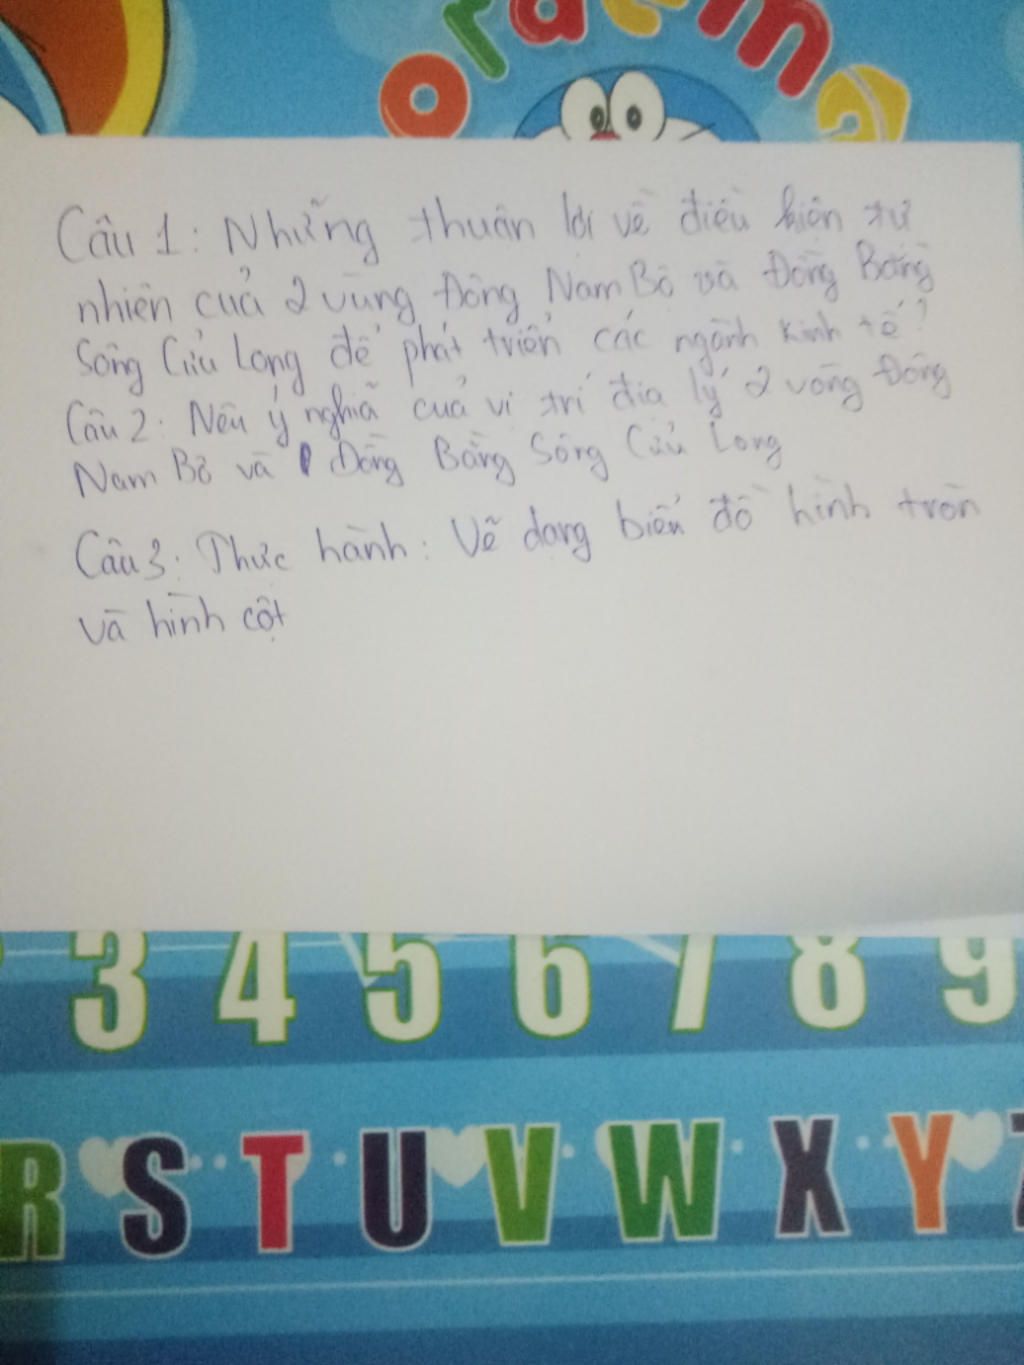 oraema
Câu 1: Những thuận lợi về điều kiện tự
nhiên của 2 vùng Đông Nam Bộ và Đồng Bằng
Sông Cửu Long để phát triển các ngành kinh tế?
Câu 2: Nêu ý nghĩa của vị trí địa lý 2 vòng Đông
Nam Bộ và Đồng Bằng Sông Cửu Long
Câu 3: Thực hành: Vẽ dạng biến đồ hình tròn
và hình cột
3 4 5 6 7 8 9
R S T U V W X Y Z